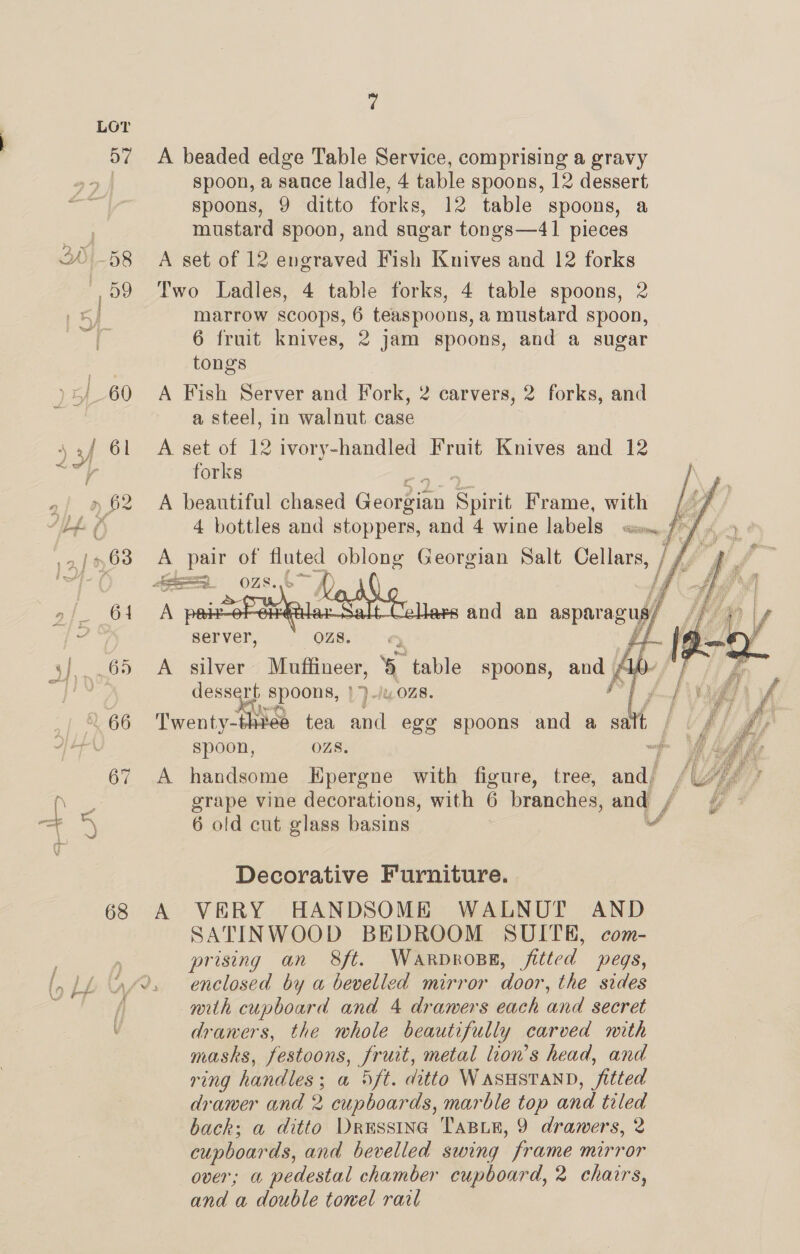 7
LOT
57 A beaded edge Table Service, comprising a gravy
spoon, a sauce ladle, 4 table spoons, 12 dessert
spoons, 9 ditto forks, 12 table spoons, a
mustard spoon, and sugar tongs—41 pieces
58 A set of 12 engraved Fish Knives and 12 forks
59 Two Ladles, 4 table forks, 4 table spoons, 2
marrow scoops, 6 teaspoons, a mustard spoon,
6 fruit knives, 2 jam spoons, and a sugar
tongs
60 A Fish Server and Fork, 2 carvers, 2 forks, and
a steel, in walnut case
61 A set of 12 ivory-handled Fruit Knives and 12
forks
62 A beautiful chased Georgian Spirit Frame, with
4 bottles and stoppers, and 4 wine labels
63 A pair of fluted oblong Georgian Salt Cellars,
ozs.
64 A pair of circular Salt Cellars and an asparagus
server, ozs.
65 A silver Muffineer, 5 table spoons, and
dessert spoons, ozs.
66 Twenty-three tea and egg spoons and a salt
spoon, ozs.
67 A handsome Epergne with figure, tree, and
grape vine decorations, with 6 branches, and
6 old cut glass basins
Decorative Furniture.
68 A VERY HANDSOME WALNUT AND
SATINWOOD BEDROOM SUITE, com-
prising an 8ft. WARDROBE, fitted pegs,
enclosed by a bevelled mirror door, the sides
with cupboard and 4 drawers each and secret
drawers, the whole beautifully carved with
masks, festoons, fruit, metal lion's head, and
ring handles; a 5ft. ditto WASHSTAND, fitted
drawer and 2 cupboards, marble top and tiled
back; a ditto DRESSING TABLE, 9 drawers, 2
cupboards, and bevelled swing frame mirror
over; a pedestal chamber cupboard, 2 chairs,
and a double towel rail